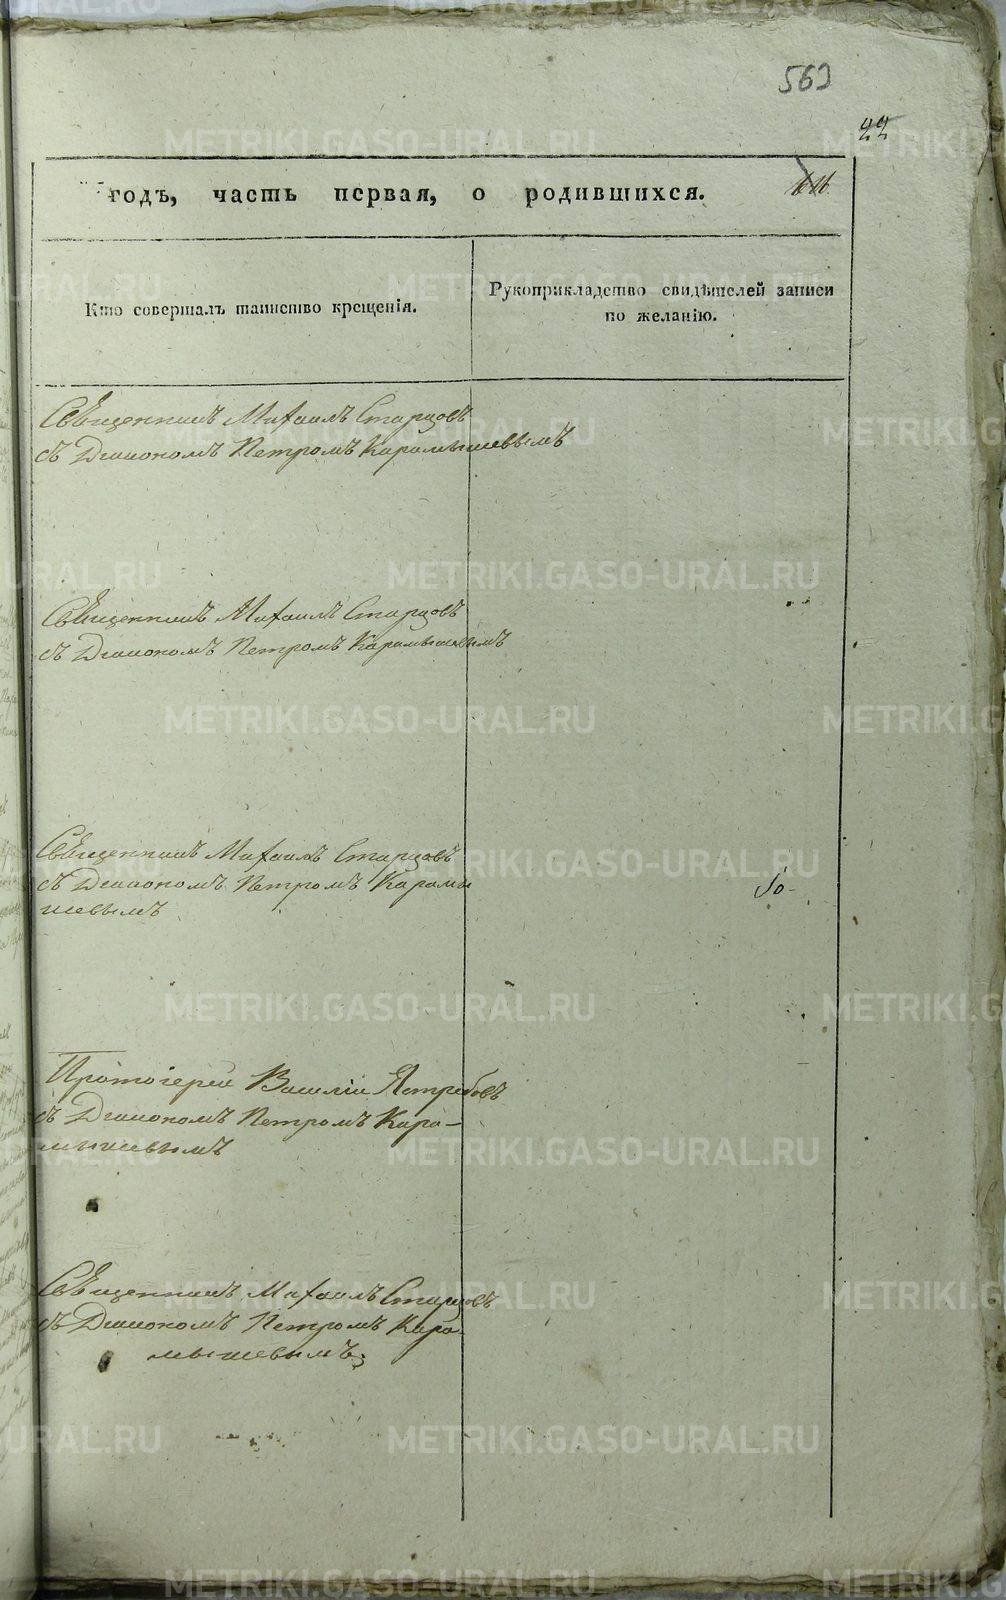 563
22
годъ, часть первая, о родившихся.
Кто совершалъ таинство крещенія.
Рукоприкладство свидѣтелей записи
по желанію.
Священникъ Михаилъ Старцовъ
съ Діакономъ Петромъ Карамышевымъ
Священникъ Михаилъ Старцовъ
съ Діакономъ Петромъ Карамышевымъ
Священникъ Михаилъ Старцовъ
съ Діакономъ Петромъ Карамы
шевымъ
Протоіерей Василій Ястребовъ
съ Діакономъ Петромъ Кара-
мышевымъ
Священникъ Михаилъ Старцовъ
съ Діакономъ Петромъ Кара-
мышевымъ;
METRIKI.GASO-URAL.RU